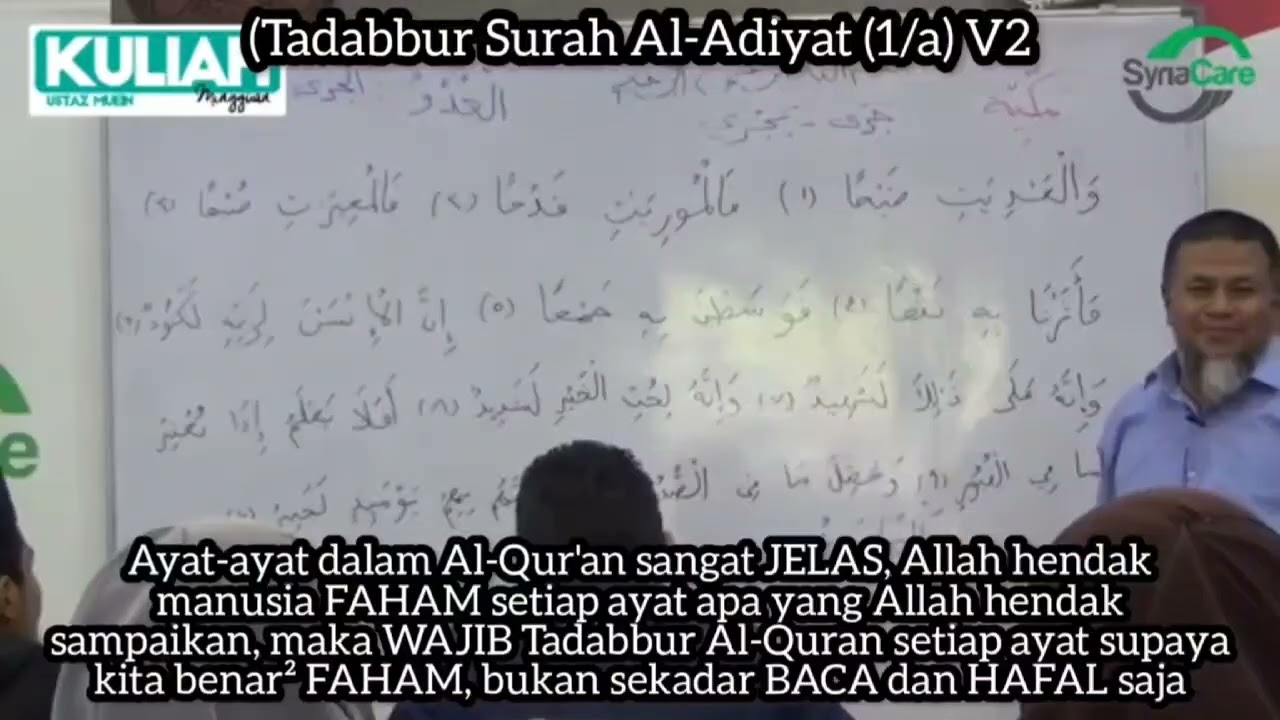 (Tadabbur Surah Al-Adiyat (1/a) V2
KULIAH
USTAZ MUEIN
Mingguan
SynaCare
العَدْوُ الجرى
مكيّة
جَرَى - يَجْرِى
وَالْعَٰدِيَٰتِ ضَبْحًا (١) فَالْمُورِيَٰتِ قَدْحًا (٢) فَالْمُغِيرَٰتِ صُبْحًا (٣)
فَأَثَرْنَ بِهِ نَقْعًا (٤) فَوَسَطْنَ بِهِ جَمْعًا (٥) إِنَّ الْإِنسَٰنَ لِرَبِّهِ لَكَنُودٌ (٦)
وَإِنَّهُ عَلَى ذَٰلِكَ لَشَهِيدٌ (٧) وَإِنَّهُ لِحُبِّ الْخَيْرِ لَشَدِيدٌ (٨) أَفَلَا يَعْلَمُ إِذَا بُعْثِرَ
مَا فِي الْقُبُورِ (٩) وَحُصِّلَ مَا فِي يَوْمَئِذٍ لَخَبِيرٌ
e
Ayat-ayat dalam Al-Qur'an sangat JELAS, Allah hendak
manusia FAHAM setiap ayat apa yang Allah hendak
sampaikan, maka WAJIB Tadabbur Al-Quran setiap ayat supaya
kita benar² FAHAM, bukan sekadar BACA dan HAFAL saja